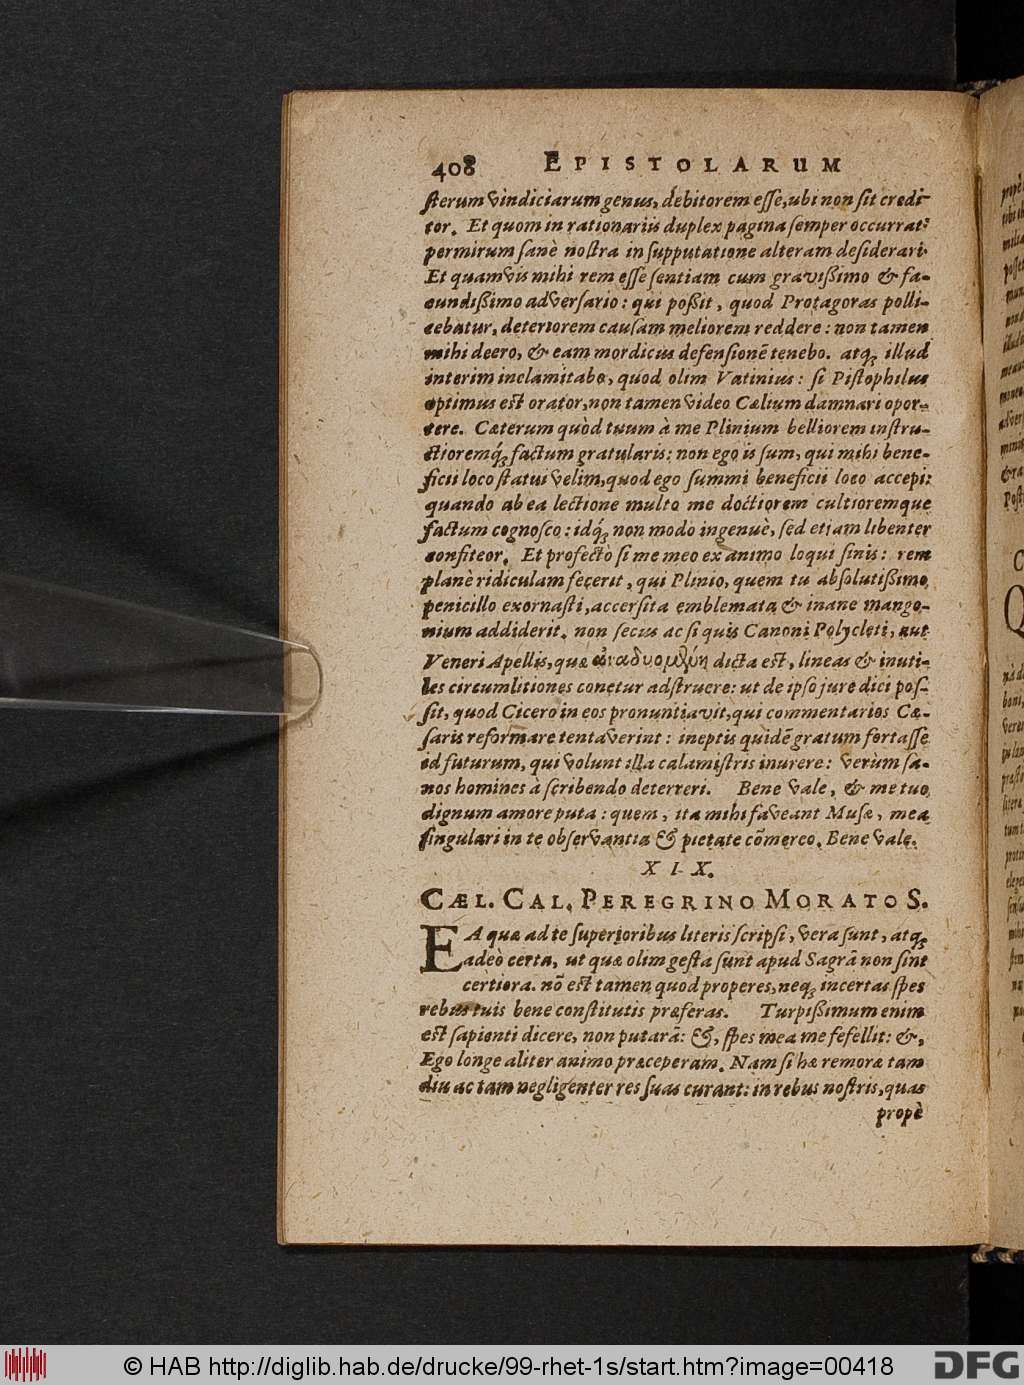 408 EPISTOLARUM
sterum vindiciarum genus, debitorem esse, ubi non sit credi-
tor. Et quom in rationariis duplex pagina semper occurrat:
permirum sanè nostra in supputatione alteram desiderari.
Et quamvis mihi rem esse sentiam cum gravißimo & fa-
cundißimo adversario: qui poßit, quod Protagoras polli-
cebatur, deteriorem causam meliorem reddere: non tamen
mihi deero, & eam mordicus defensionē tenebo. atq; illud
interim inclamitabo, quod olim Vatinius: si Pistophilus
optimus est orator, non tamen video Cælium damnari opor-
tere. Cæterum quòd tuum à me Plinium belliorem instru-
ctioremq́; factum gratularis: non ego is sum, qui mihi bene-
ficii loco statui velim, quod ego summi beneficii loco accepi:
quando ab ea lectione multo me doctiorem cultioremque
factum cognosco: idq́; non modo ingenuè, sed etiam libenter
confiteor. Et profectò si me meo ex animo loqui sinis: rem
planè ridiculam fecerit, qui Plinio, quem tu absolutißimo
penicillo exornasti, accersita emblemata & inane mango-
nium addiderit. non secus ac si quis Canoni Polycleti, aut
Veneri Apellis, quæ ἀναδυομένη dicta est, lineas & inuti-
les circumlitiones conetur adstruere: ut de ipso jure dici pos-
sit, quod Cicero in eos pronuntiavit, qui commentarios Cæ-
saris reformare tentaverint: ineptis quidē gratum fortasse
id futurum, qui volunt illa calamistris inurere: verùm sa-
nos homines à scribendo deterreri. Bene vale, & me tuo
dignum amore puta: quem, ita mihi faveant Musæ, mea
singulari in te observantia & pietate cōmereo. Bene vale.
XIX.
CÆL. CAL. PEREGRINO MORATO S.
EA quæ ad te superioribus literis scripsi, vera sunt, atq;
adeò certa, ut quæ olim gesta sunt apud Sagrā non sint
certiora. nō est tamen quod properes, neq; incertas spes
rebus tuis bene constitutis præferas. Turpißimum enim
est sapienti dicere, non putarā: &, spes mea me fefellit: &,
Ego longe aliter animo præceperam. Nam si hæ remoræ tam
diu ac tam negligenter res suas curant: in rebus nostris, quas
propè
© HAB http://diglib.hab.de/drucke/99-rhet-1s/start.htm?image=00418
DFG